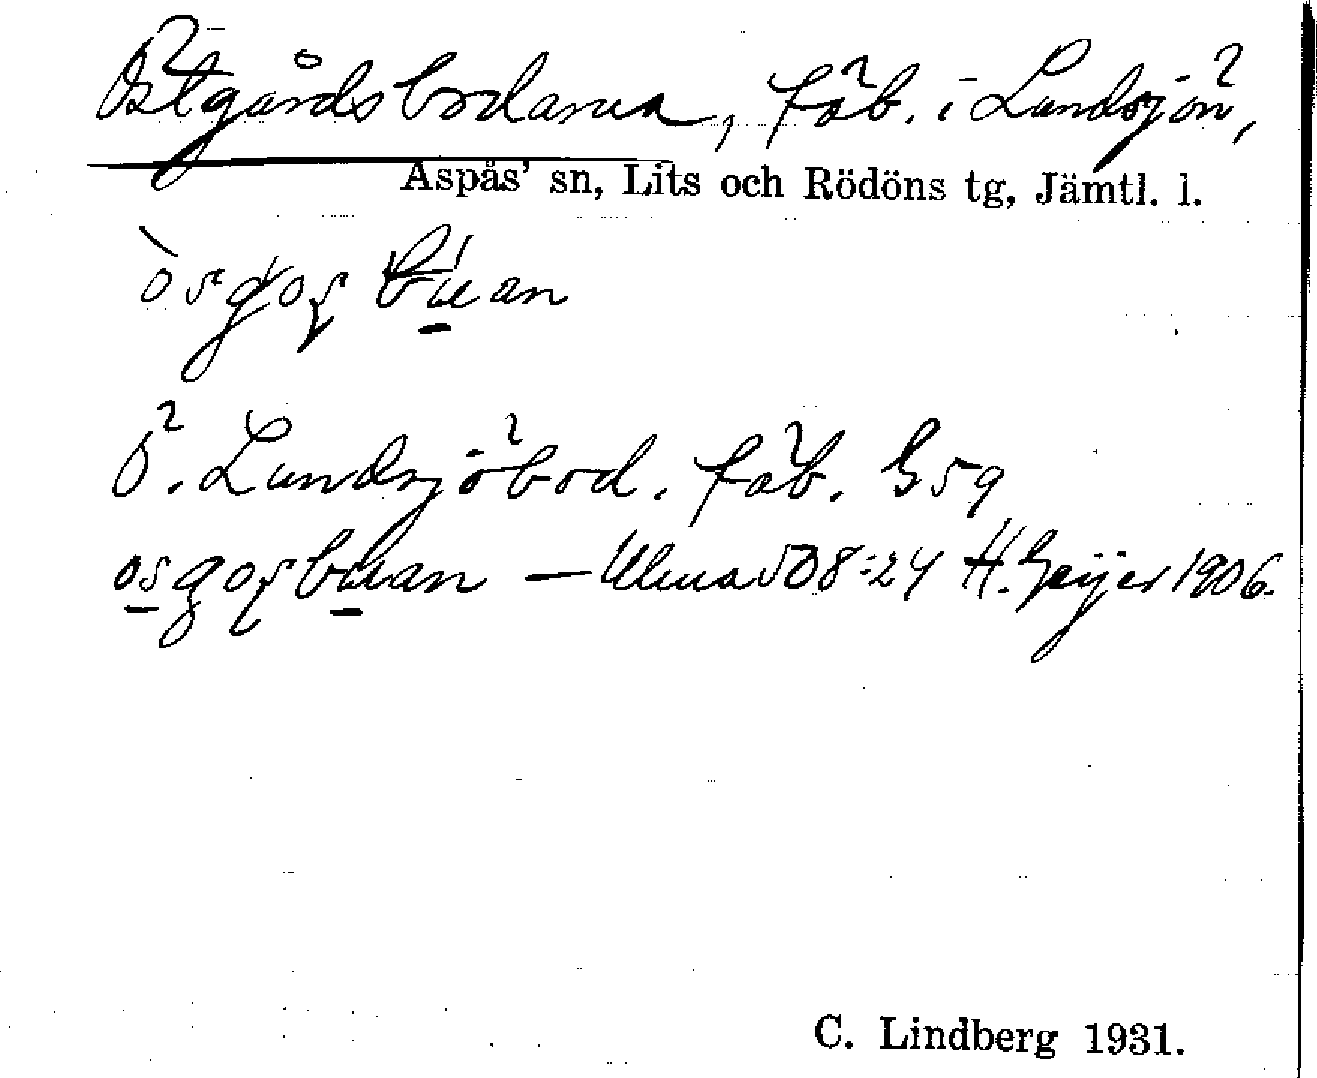 Östgårdsbodarna, fäb. i Landsjön,
Aspås' sn, Lits och Rödöns tg, Jämtl. l.
ò s g o s b u an
Ö. Landsjöbod. fäb. G59
osgosbuan — Ulma 508:24 H. Geijer 1906.
C. Lindberg 1931.